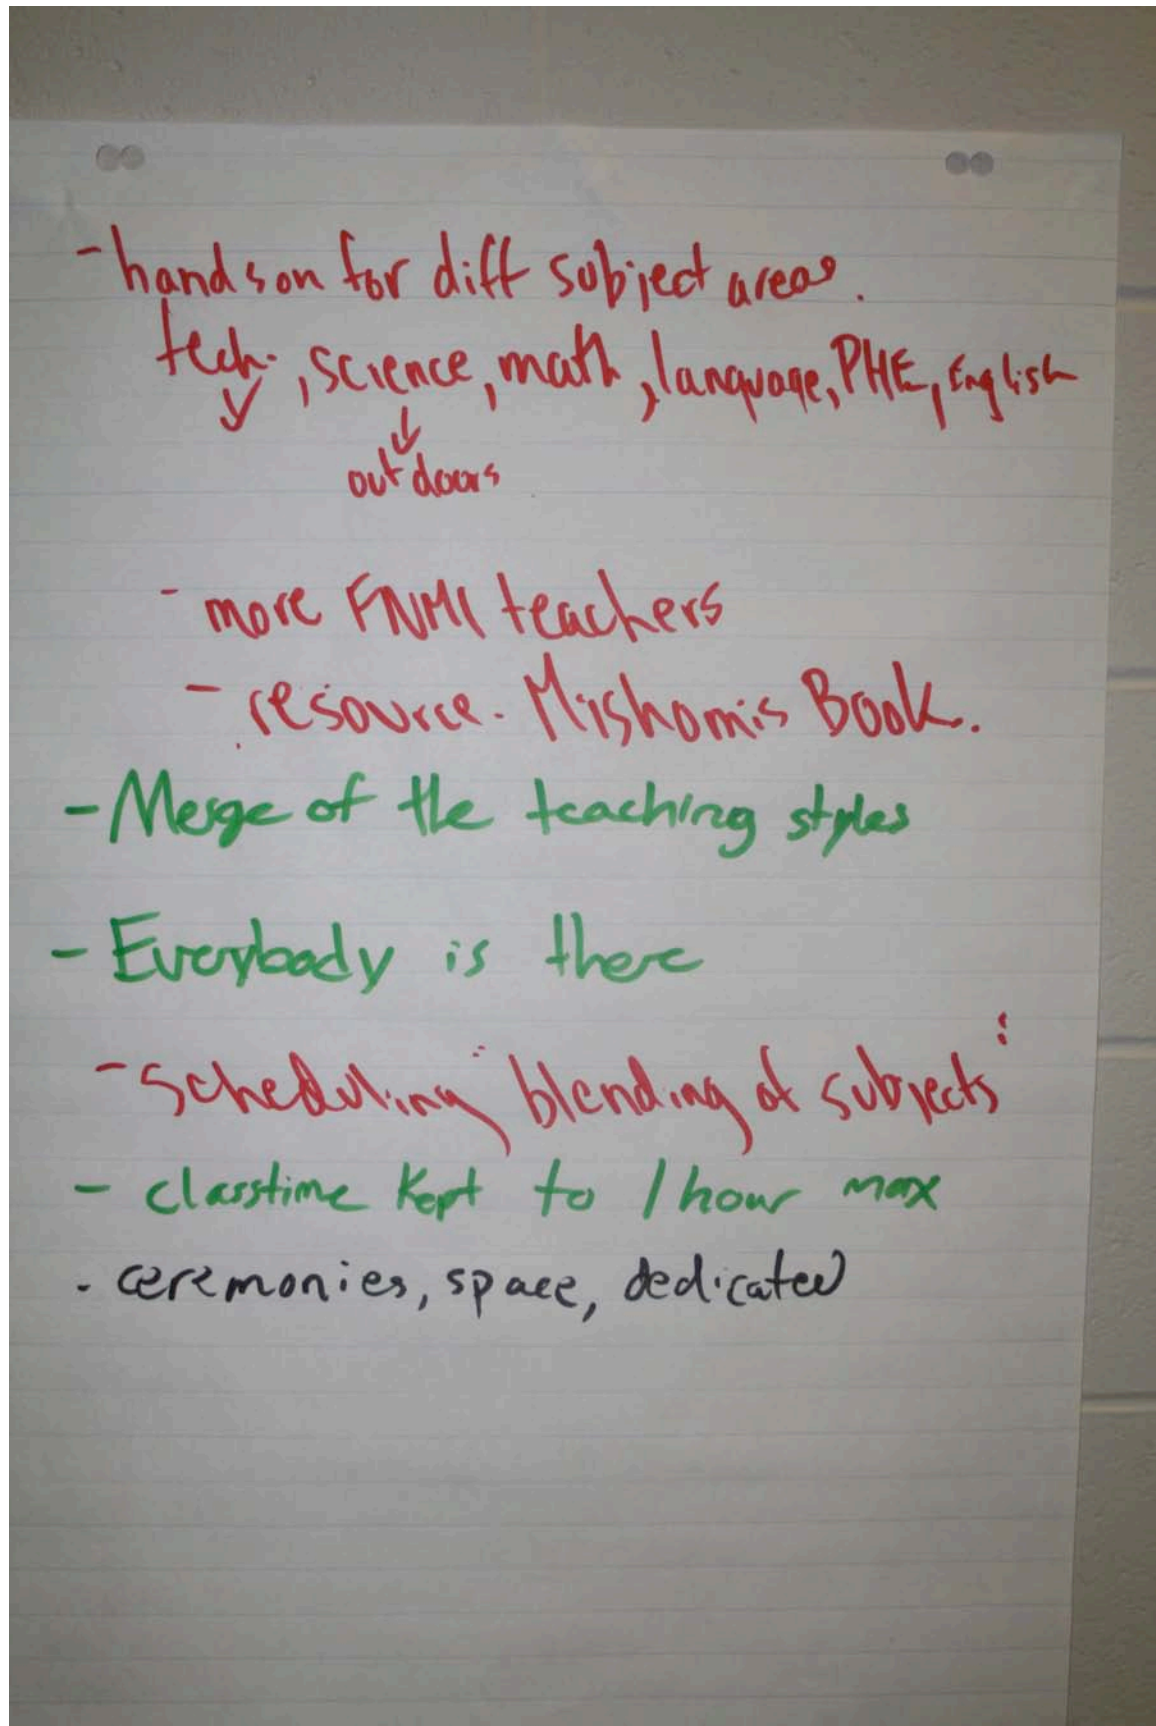 - hands on for diff subject areas.
tech. , science, math, language, PHE, English
↓ ↓
outdoors
- more FNMI teachers
- resource. Mishomis Book.
- Merge of the teaching styles
- Everybody is there
- Scheduling "blending of subjects"
- classtime kept to 1 hour max
- ceremonies, space, dedicated